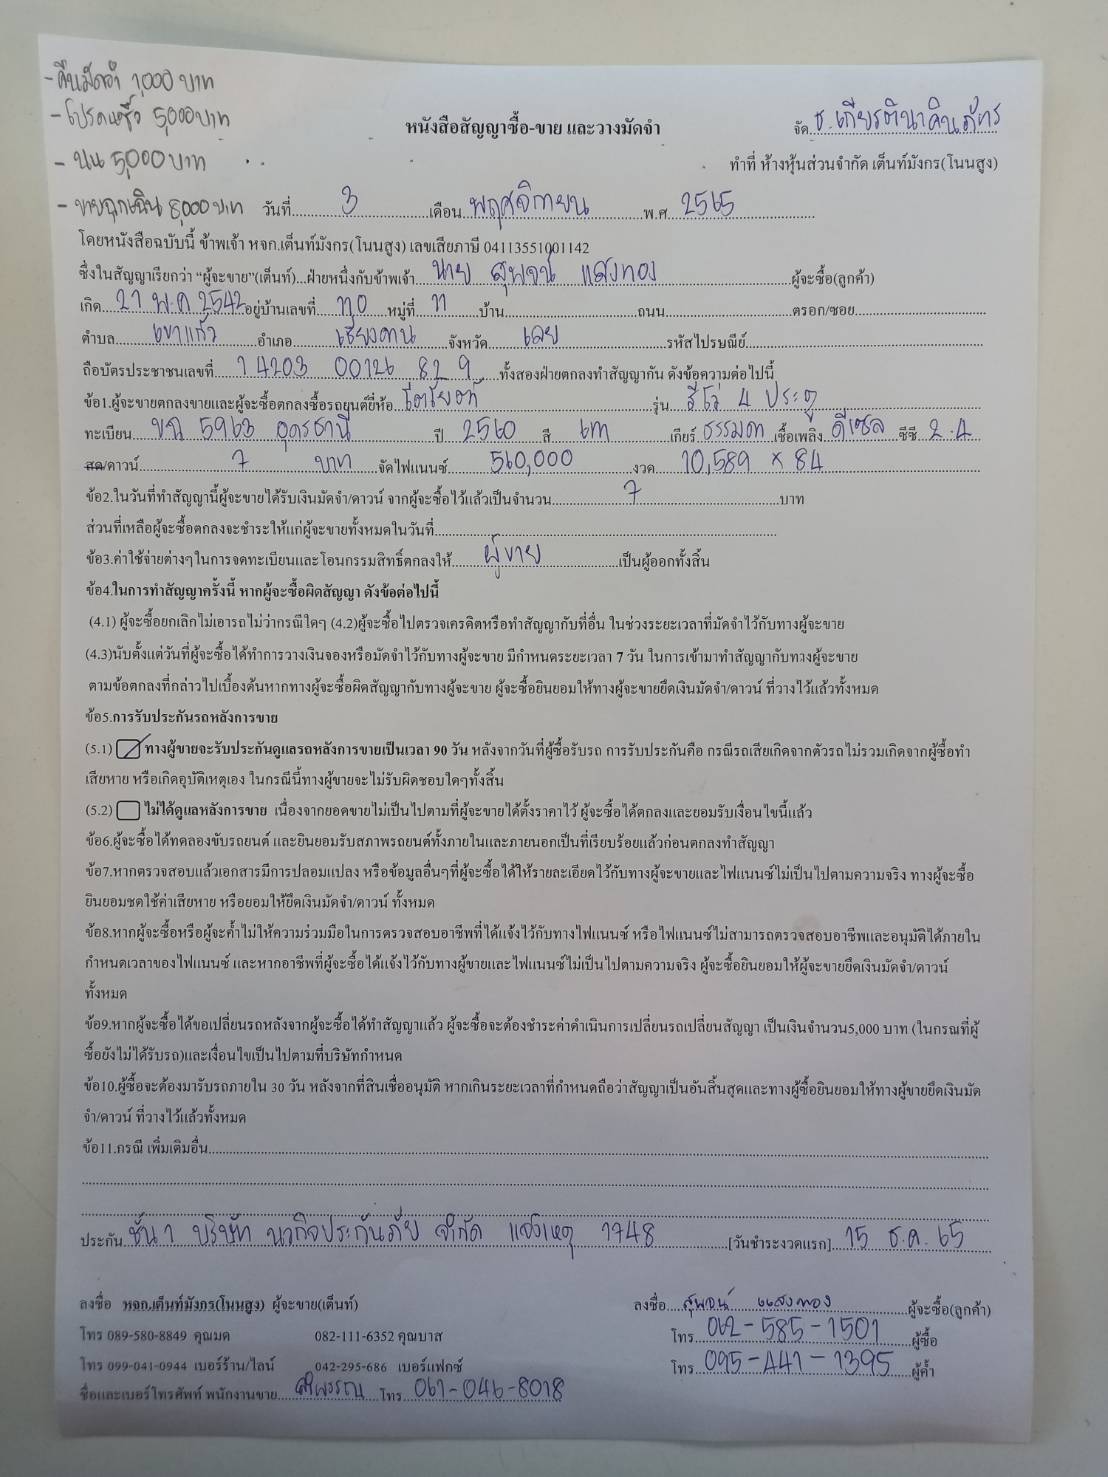 - คืนมัดจำ 1,000 บาท
- โปรดาวน์ซิ่ว 5,000 บาท
หนังสือสัญญาซื้อ-ขาย และวางมัดจำ
จัด ธ.เกียรตินาคินภัทร
- นน 5,000 บาท
ทำที่ ห้างหุ้นส่วนจำกัด เต็นท์มังกร(โนนสูง)
- ขายฉุกเฉิน 8,000 บาท วันที่ 3 เดือน พฤศจิกายน พ.ศ. 2565
โดยหนังสือฉบับนี้ ข้าพเจ้า หจก.เต็นท์มังกร(โนนสูง) เลขเสียภาษี 04113551001142
ซึ่งในสัญญาเรียกว่า "ผู้จะขาย"(เต็นท์)...ฝ่ายหนึ่งกับข้าพเจ้า นาย สุพจน์ แสงทอง ผู้จะซื้อ(ลูกค้า)
เกิด 21 พ.ค 2542 อยู่บ้านเลขที่ 110 หมู่ที่ 11 บ้าน ถนน ตรอก/ซอย
ตำบล เขาแก้ว อำเภอ เชียงคาน จังหวัด เลย รหัสไปรษณีย์
ถือบัตรประชาชนเลขที่ 1 4203 00126 82 9 ทั้งสองฝ่ายตกลงทำสัญญากัน ดังข้อความต่อไปนี้
ข้อ1.ผู้จะขายตกลงขายและผู้จะซื้อตกลงซื้อรถยนต์ยี่ห้อ โตโยต้า รุ่น รีโว่ 4 ประตู
ทะเบียน ขฉ 5963 อุดรธานี ปี 2560 สี เทา เกียร์ ธรรมดา เชื้อเพลิง ดีเซล ซีซี 2.4
สด/ดาวน์ 7 บาท จัดไฟแนนซ์ 560,000 งวด 10,589 x 84
ข้อ2.ในวันที่ทำสัญญานี้ผู้จะขายได้รับเงินมัดจำ/ดาวน์ จากผู้จะซื้อไว้แล้วเป็นจำนวน 7 บาท
ส่วนที่เหลือผู้จะซื้อตกลงจะชำระให้แก่ผู้จะขายทั้งหมดในวันที่
ข้อ3.ค่าใช้จ่ายต่างๆในการจดทะเบียนและโอนกรรมสิทธิ์ตกลงให้ ผู้ขาย เป็นผู้ออกทั้งสิ้น
ข้อ4.ในการทำสัญญาครั้งนี้ หากผู้จะซื้อผิดสัญญา ดังข้อต่อไปนี้
(4.1) ผู้จะซื้อยกเลิกไม่เอารถไม่ว่ากรณีใดๆ (4.2)ผู้จะซื้อไปตรวจเครดิตหรือทำสัญญากับที่อื่น ในช่วงระยะเวลาที่มัดจำไว้กับทางผู้จะขาย
(4.3)นับตั้งแต่วันที่ผู้จะซื้อได้ทำการวางเงินจองหรือมัดจำไว้กับทางผู้จะขาย มีกำหนดระยะเวลา 7 วัน ในการเข้ามาทำสัญญากับทางผู้จะขาย
ตามข้อตกลงที่กล่าวไปเบื้องต้นหากทางผู้จะซื้อผิดสัญญากับทางผู้จะขาย ผู้จะซื้อยินยอมให้ทางผู้จะขายยึดเงินมัดจำ/ดาวน์ ที่วางไว้แล้วทั้งหมด
ข้อ5.การรับประกันรถหลังการขาย
(5.1) ทางผู้ขายจะรับประกันดูแลรถหลังการขายเป็นเวลา 90 วัน หลังจากวันที่ผู้ซื้อรับรถ การรับประกันคือ กรณีรถเสียเกิดจากตัวรถ ไม่รวมเกิดจากผู้ซื้อทำ
เสียหาย หรือเกิดอุบัติเหตุเอง ในกรณีนี้ทางผู้ขายจะไม่รับผิดชอบใดๆทั้งสิ้น
(5.2) ไม่ได้ดูแลหลังการขาย เนื่องจากยอดขายไม่เป็นไปตามที่ผู้จะขายได้ตั้งราคาไว้ ผู้จะซื้อได้ตกลงและยอมรับเงื่อนไขนี้แล้ว
ข้อ6.ผู้จะซื้อได้ทดลองขับรถยนต์ และยินยอมรับสภาพรถยนต์ทั้งภายในและภายนอกเป็นที่เรียบร้อยแล้วก่อนตกลงทำสัญญา
ข้อ7.หากตรวจสอบแล้วเอกสารมีการปลอมแปลง หรือข้อมูลอื่นๆที่ผู้จะซื้อได้ให้รายละเอียดไว้กับทางผู้จะขายและไฟแนนซ์ไม่เป็นไปตามความจริง ทางผู้จะซื้อ
ยินยอมชดใช้ค่าเสียหาย หรือยอมให้ยึดเงินมัดจำ/ดาวน์ ทั้งหมด
ข้อ8.หากผู้จะซื้อหรือผู้จะค้ำไม่ให้ความร่วมมือในการตรวจสอบอาชีพที่ได้แจ้งไว้กับทางไฟแนนซ์ หรือไฟแนนซ์ไม่สามารถตรวจสอบอาชีพและอนุมัติได้ภายใน
กำหนดเวลาของไฟแนนซ์ และหากอาชีพที่ผู้จะซื้อได้แจ้งไว้กับทางผู้ขายและไฟแนนซ์ไม่เป็นไปตามความจริง ผู้จะซื้อยินยอมให้ผู้จะขายยึดเงินมัดจำ/ดาวน์
ทั้งหมด
ข้อ9.หากผู้จะซื้อได้ขอเปลี่ยนรถหลังจากผู้จะซื้อได้ทำสัญญาแล้ว ผู้จะซื้อจะต้องชำระค่าดำเนินการเปลี่ยนรถเปลี่ยนสัญญา เป็นเงินจำนวน5,000 บาท (ในกรณที่ผู้
ซื้อยังไม่ได้รับรถ)และเงื่อนไขเป็นไปตามที่บริษัทกำหนด
ข้อ10.ผู้ซื้อจะต้องมารับรถภายใน 30 วัน หลังจากที่สินเชื่ออนุมัติ หากเกินระยะเวลาที่กำหนดถือว่าสัญญาเป็นอันสิ้นสุดและทางผู้ซื้อยินยอมให้ทางผู้ขายยึดเงินมัด
จำ/ดาวน์ ที่วางไว้แล้วทั้งหมด
ข้อ11.กรณี เพิ่มเติมอื่น
ประกัน ชั้น 1 บริษัท นวกิจประกันภัย จำกัด แจ้งเหตุ 1748 [วันชำระงวดแรก] 15 ธ.ค. 65
ลงชื่อ หจก.เต็นท์มังกร(โนนสูง) ผู้จะขาย(เต็นท์) ลงชื่อ สุพจน์ แสงทอง ผู้จะซื้อ(ลูกค้า)
โทร 089-580-8849 คุณมด 082-111-6352 คุณบาส โทร 062-585-1501 ผู้ซื้อ
โทร 099-041-0944 เบอร์ร้าน/ไลน์ 042-295-686 เบอร์แฟกซ์ โทร 095-441-1395 ผู้ค้ำ
ชื่อและเบอร์โทรศัพท์ พนักงานขาย ศิพรรณ โทร 061-046-8018